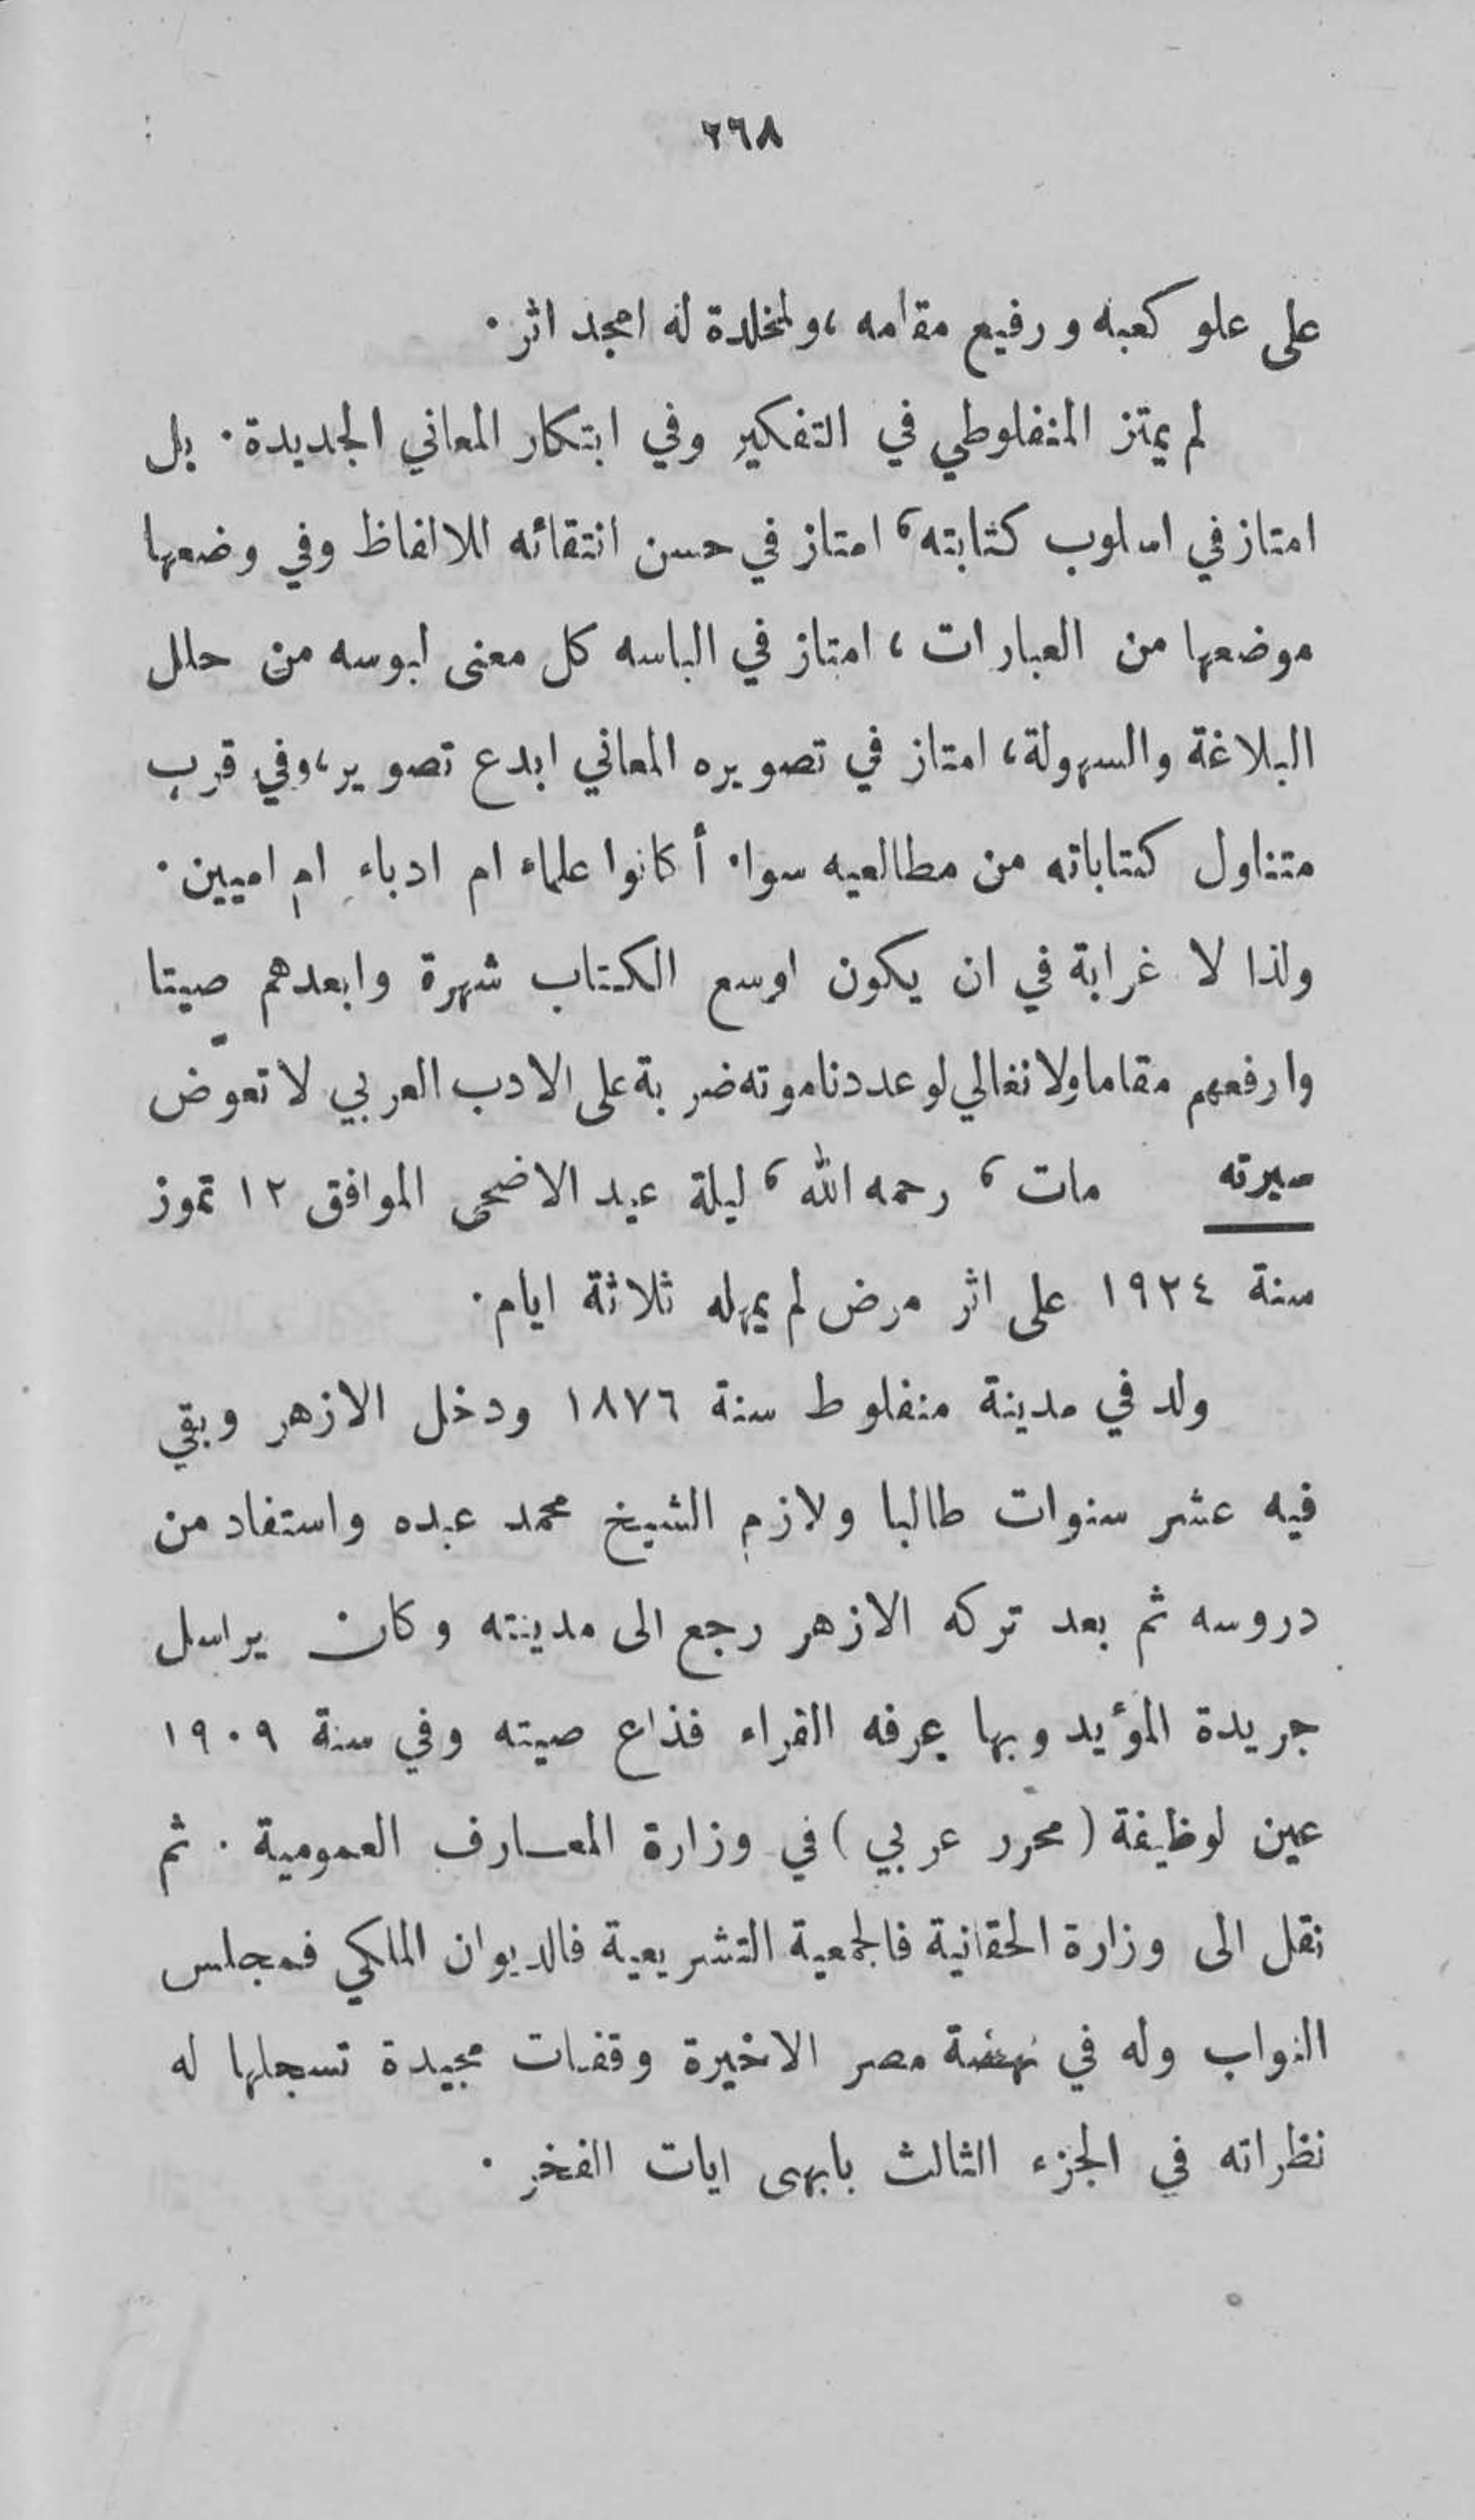 ٢٦٨
على علو كعبه ورفيع مقامه، ولمخلدة له امجد اثر.
لم يمتز المنفلوطي في التفكير وفي ابتكار المعاني الجديدة. بل
امتاز في اسلوب كتابته، امتاز في حسن انتقائه للالفاظ وفي وضعها
موضعها من العبارات، امتاز في الباسه كل معنى لبوسه من حلل
البلاغة والسهولة، امتاز في تصويره المعاني ابدع تصوير، وفي قرب
متناول كتاباته من مطالعيه سواء أكانوا علماء ام ادباء ام اميين.
ولذا لا غرابة في ان يكون اوسع الكتاب شهرة وابعدهم صيتا
وارفعهم مقاما ولا نغالي لو عددنا موته ضربة على الادب العربي لا تعوّض
سيرته مات، رحمه الله، ليلة عيد الاضحى الموافق ١٢ تموز
سنة ١٩٢٤ على اثر مرض لم يمهله ثلاثة ايام.
ولد في مدينة منفلوط سنة ١٨٧٦ ودخل الازهر وبقي
فيه عشر سنوات طالبا ولازم الشيخ محمد عبده واستفاد من
دروسه ثم بعد تركه الازهر رجع الى مدينته وكان يراسل
جريدة المؤيد وبها عرفه القراء فذاع صيته وفي سنة ١٩٠٩
عين لوظيفة (محرر عربي) في وزارة المعارف العمومية. ثم
نقل الى وزارة الحقانية فالجمعية التشريعية فالديوان الملكي فمجلس
النواب وله في نهضة مصر الاخيرة وقفات مجيدة تسجلها له
نظراته في الجزء الثالث بابهى ايات الفخر.